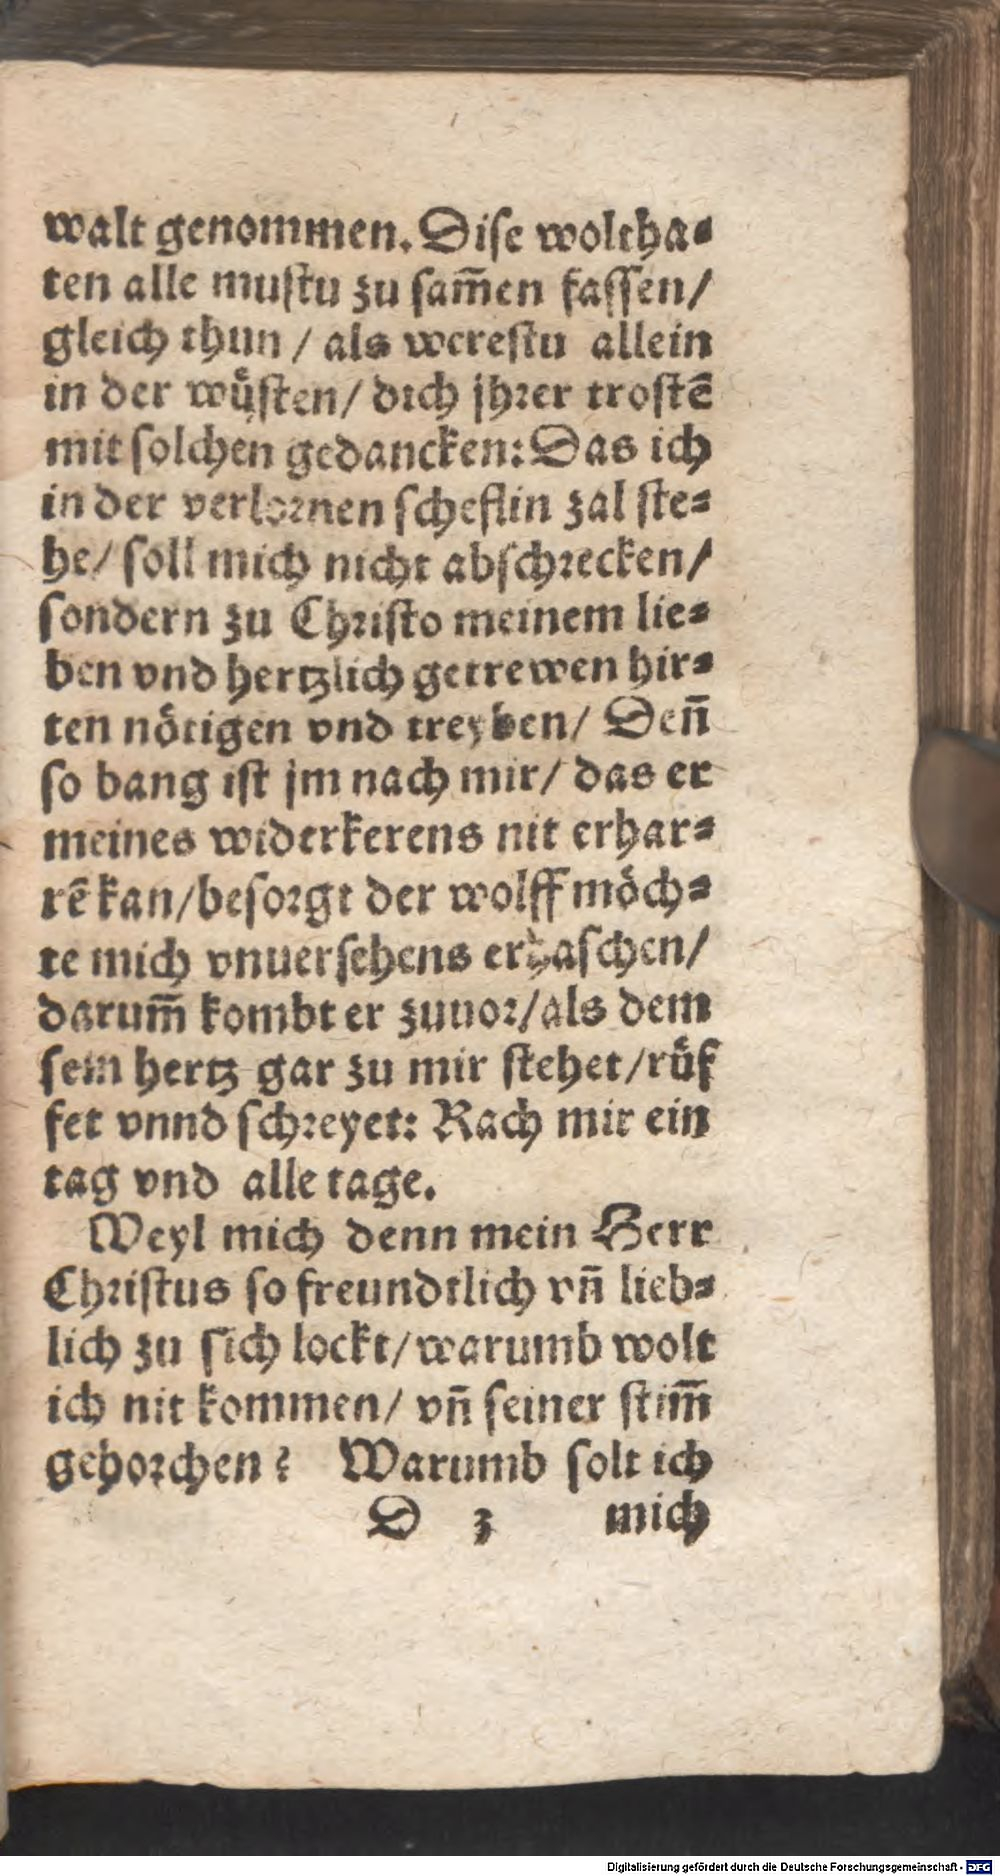 walt genommen. Diſe woltha⸗
ten alle muſtu zu ſam̃en faſſen/
gleich thun / als wereſtu allein
in der wuͤſten/ dich jhꝛer troſtẽ
mit ſolchen gedancken: Das ich
in der verloꝛnen ſcheflin zal ſte⸗
he/ ſoll mich nicht abſchꝛecken/
ſondern zu Chꝛiſto meinem lie⸗
ben vnd hertzlich getrewen hir⸗
ten noͤtigen vnd treyben/ Deñ
ſo bang iſt jm nach mir/ das er
meines widerkerens nit erhar⸗
rẽ kan/beſoꝛgt der wolff moͤch⸗
te mich vnuerſehens erhaſchen/
darum̃ kombt er zuuoꝛ/als dem
ſein hertz gar zu mir ſtehet/ruͤf
fet vnnd ſchꝛeyet: Rach mir ein
tag vnd alle tage.
Weyl mich denn mein Herr
Chꝛiſtus ſo freundtlich vñ lieb⸗
lich zu ſich lockt/warumb wolt
ich nit kommen/ vñ ſeiner ſtim̃
gehoꝛchen? Warumb ſolt ich
D 3 mich
Digitalisierung gefördert durch die Deutsche Forschungsgemeinschaft - DFG